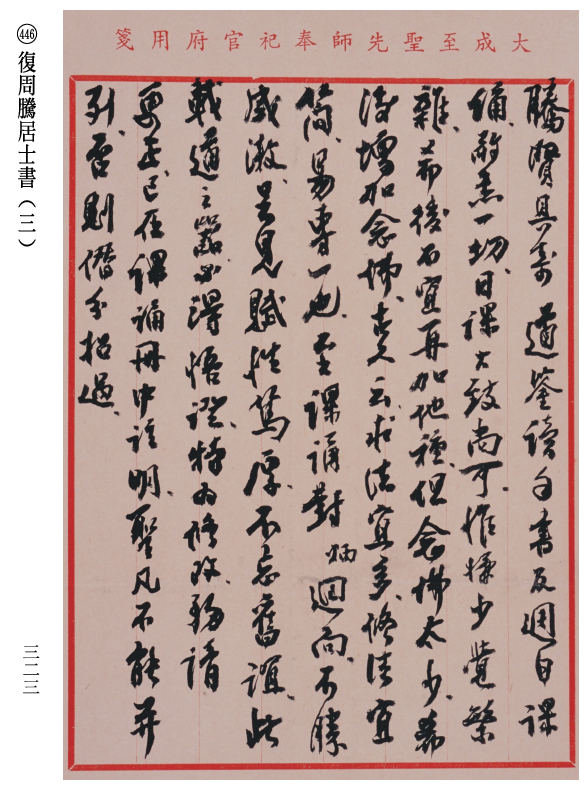 大成至聖先師奉祀官府用箋
騰賢具壽 道鑒讀手書及週日課
誦敬悉一切、日課大致尚可、惟少覺繁
雜、希後不宜再加他種、但念佛太少、希
增加念佛、古人云求法宜多、修法宜
簡、易專一也、至課誦對炳迴向、不勝
感激、足見賦性篤厚、不忘舊誼、此
載道之器、必得悟證、特為修改、務請
更正、已在課誦冊中註明、聖凡不能並
列、否則僭分招過、
446 復周騰居士書（三）
三二三